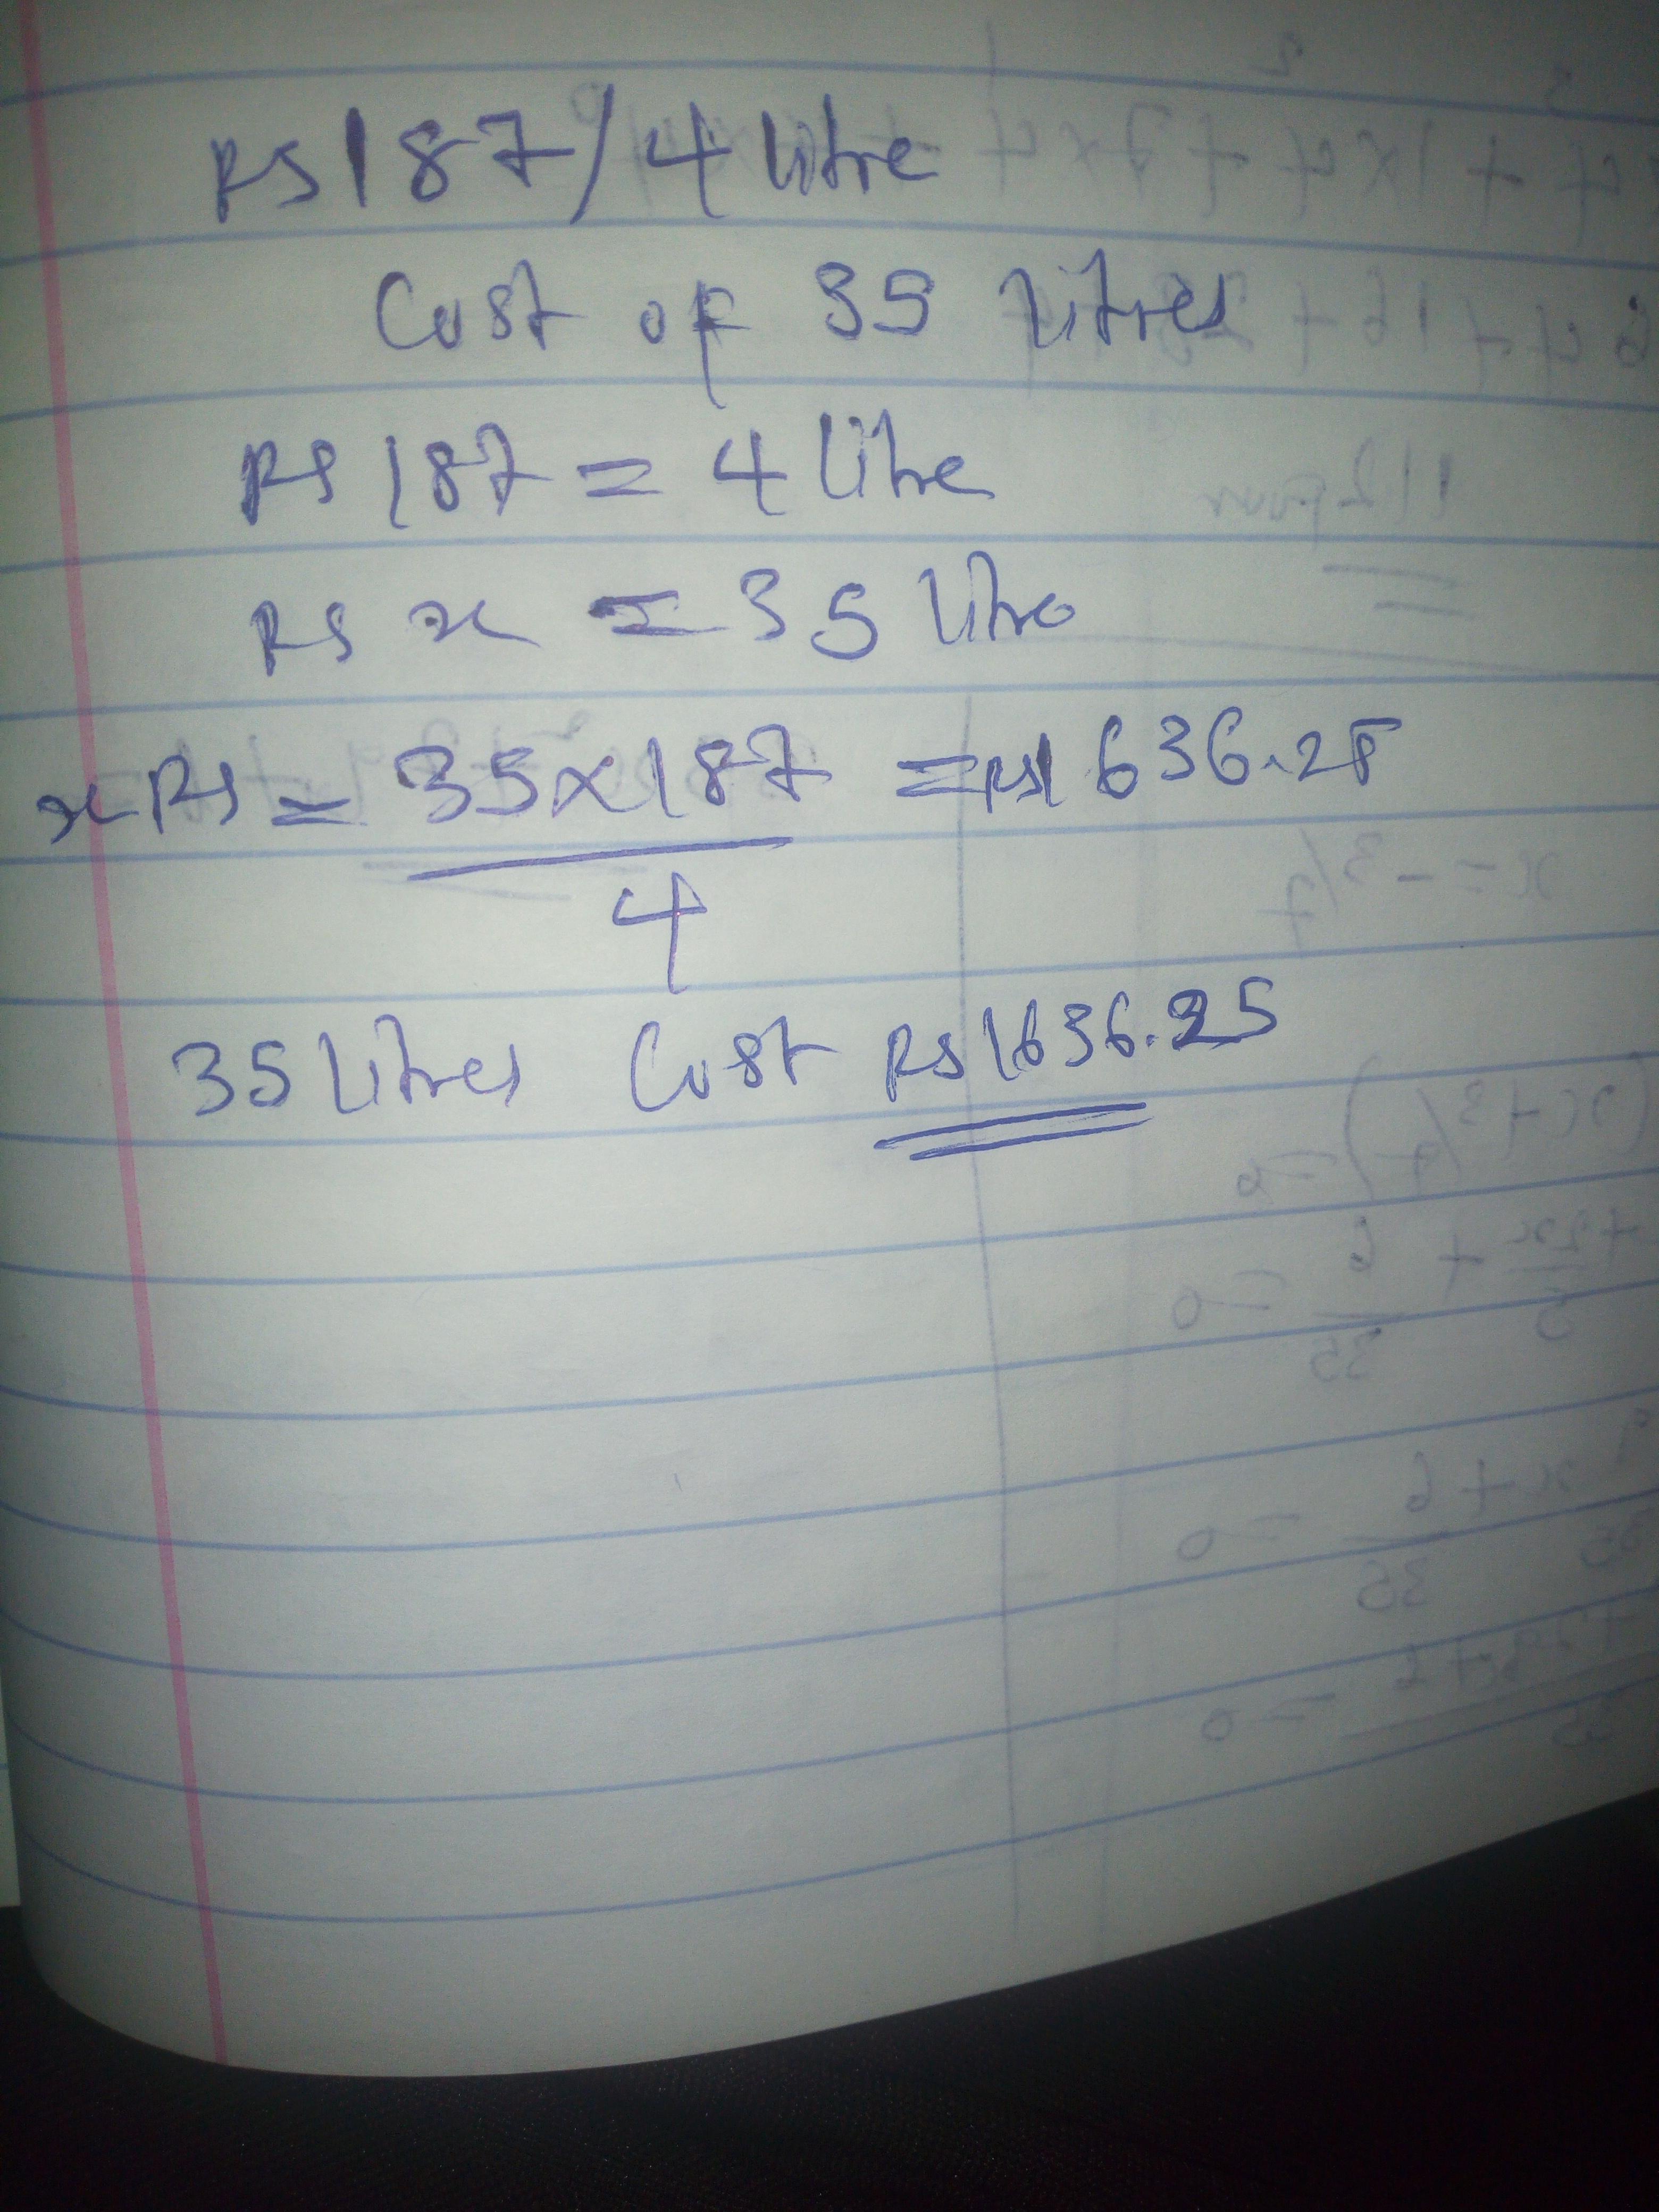 RS 187/4 litre
Cost of 35 litres
RS 187 = 4 litre
RS x = 35 litre
x RS = 35x187 = RS1636.25
4
35 litres Cost RS1636.25